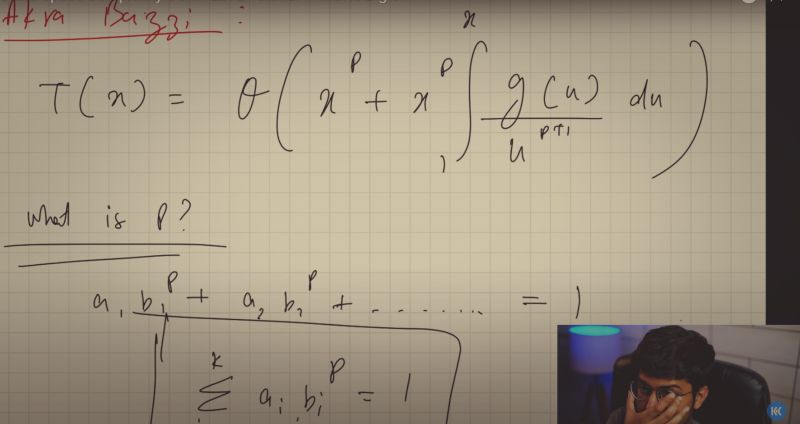 Akra Bazzi :
T(x) = θ(x^p + x^p ∫_1^x g(u)/u^{p+1} du)
What is P?
a₁ b₁^p + a₂ b₂^p + ....... = 1
∑^k aᵢ bᵢ^p = 1